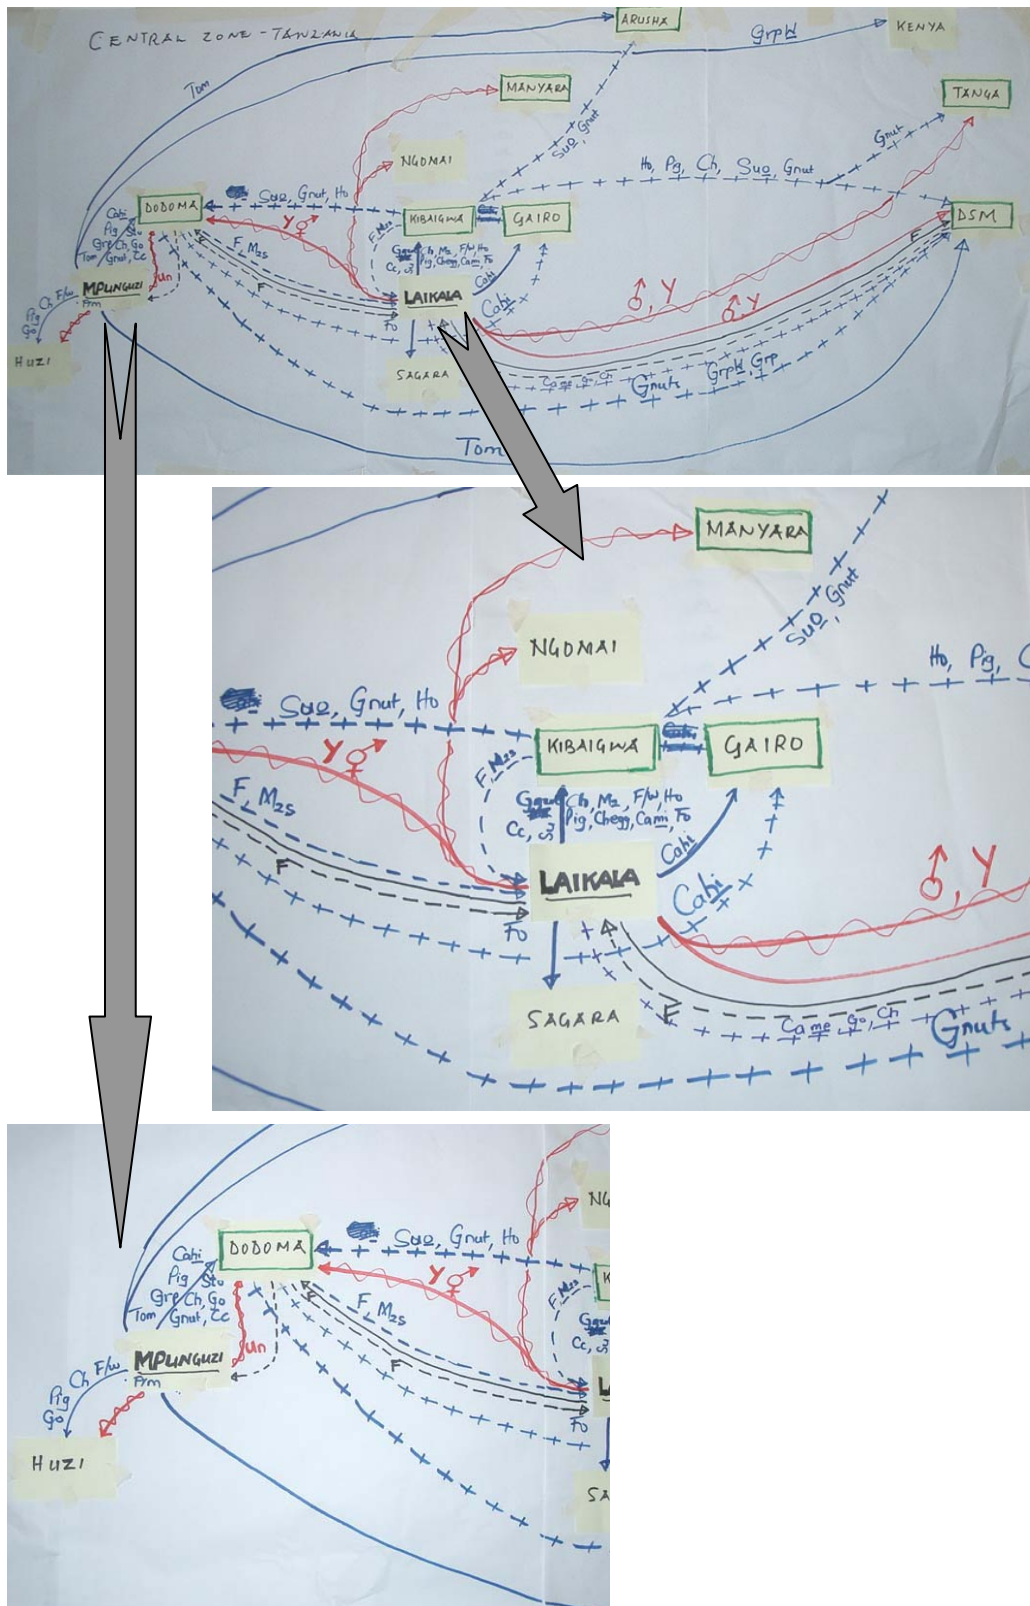 CENTRAL ZONE - TANZANIA
ARUSHA
KENYA
GrpW
Tom
MANYARA
TANGA
Suo, Gnut
Gnut
NGOMAI
Ho, Pig, Ch, Suo, Gnut
DODOMA
Suo, Gnut, Ho
KIBAIGWA
GAIRO
DSM
Cahi
Pig Sto
Grp Ch, Go
Tom Gnut, Cc
Y
F, M2s
F, M2s
F
Ch, M2, F/w, Ho
Cc, Pig, Chegg, Cami, Fo
Cahi
Un
MPUNGUZI
F/m
Ch F/w
Pig
Go
F
LAIKALA
Cahi
Fo
♂, Y
♂, Y
HUZI
SAGARA
Came, Go, Ch
Gnuts
GrpW, Grp
Tom
MANYARA
Suo, Gnut
NGOMAI
Ho, Pig,
Suo, Gnut, Ho
KIBAIGWA
GAIRO
Y
F, M2s
F, M2s
Ch, M2, F/w, Ho
Cc, Pig, Chegg, Cami, Fo
Cahi
F
LAIKALA
Cahi
♂, Y
Fo
SAGARA
F
Came Go, Ch
Gnuts
DODOMA
Suo, Gnut, Ho
NG
Cahi
Pig Sto
Grp Ch, Go
Tom Gnut, Cc
Y
F, M2s
F, M2s
F
K
Cc,
Un
MPUNGUZI
F/m
Ch F/w
Pig
Go
F
L
Fo
HUZI
SA